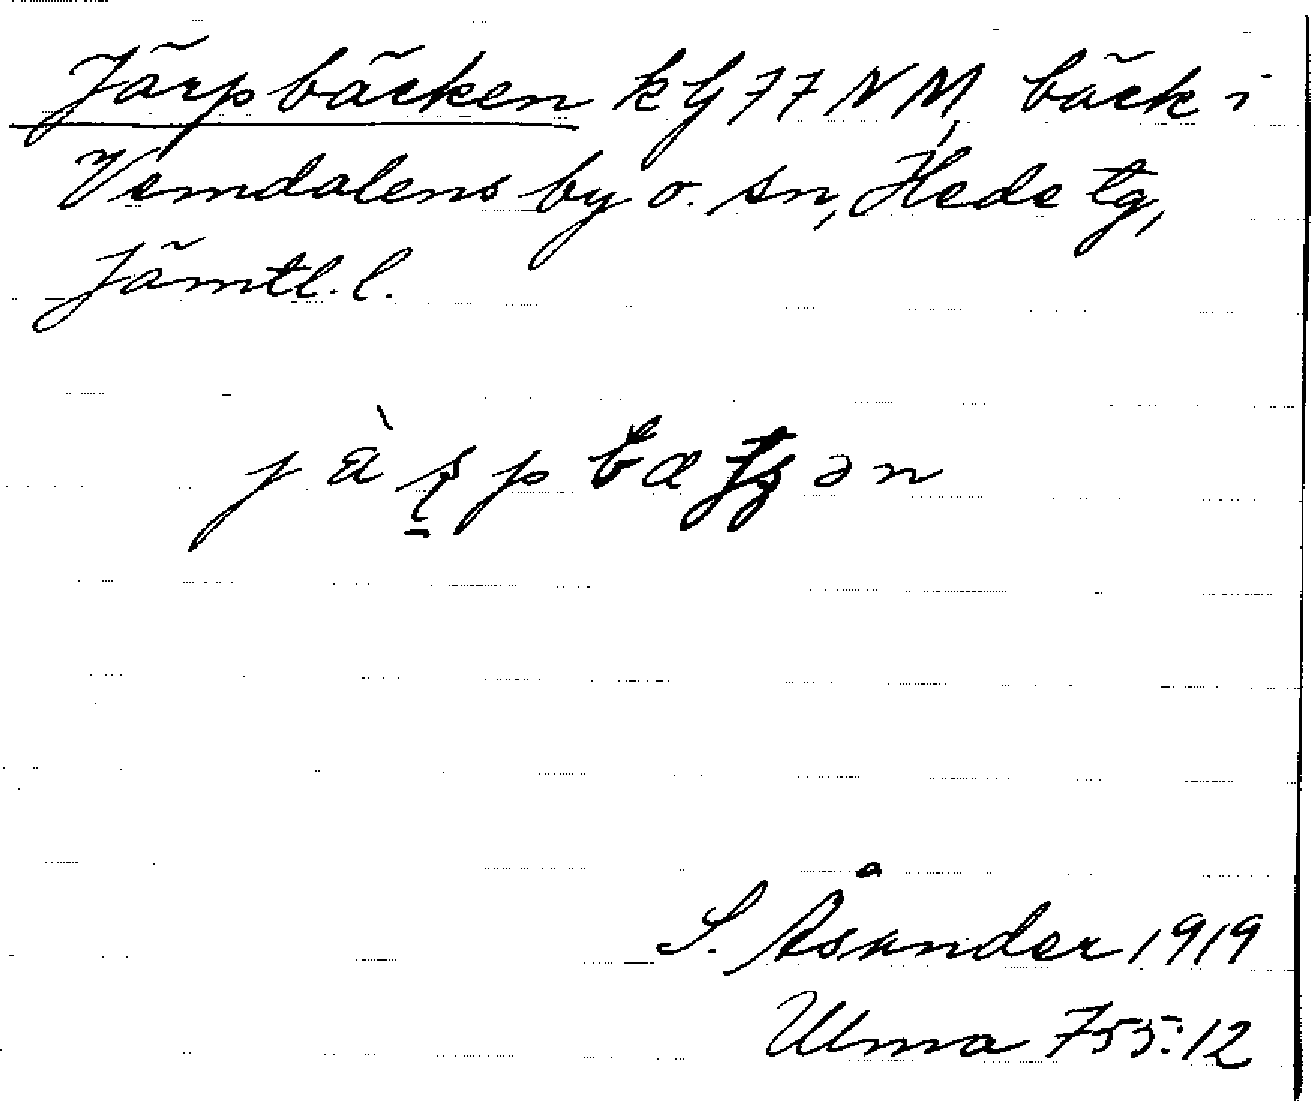 Järpbäcken kG 77 NM, bäck i
Vemdalens by o. sn, Hede tg,
Jämtl. l.
S. Åsander 1919
Ulma 755:12